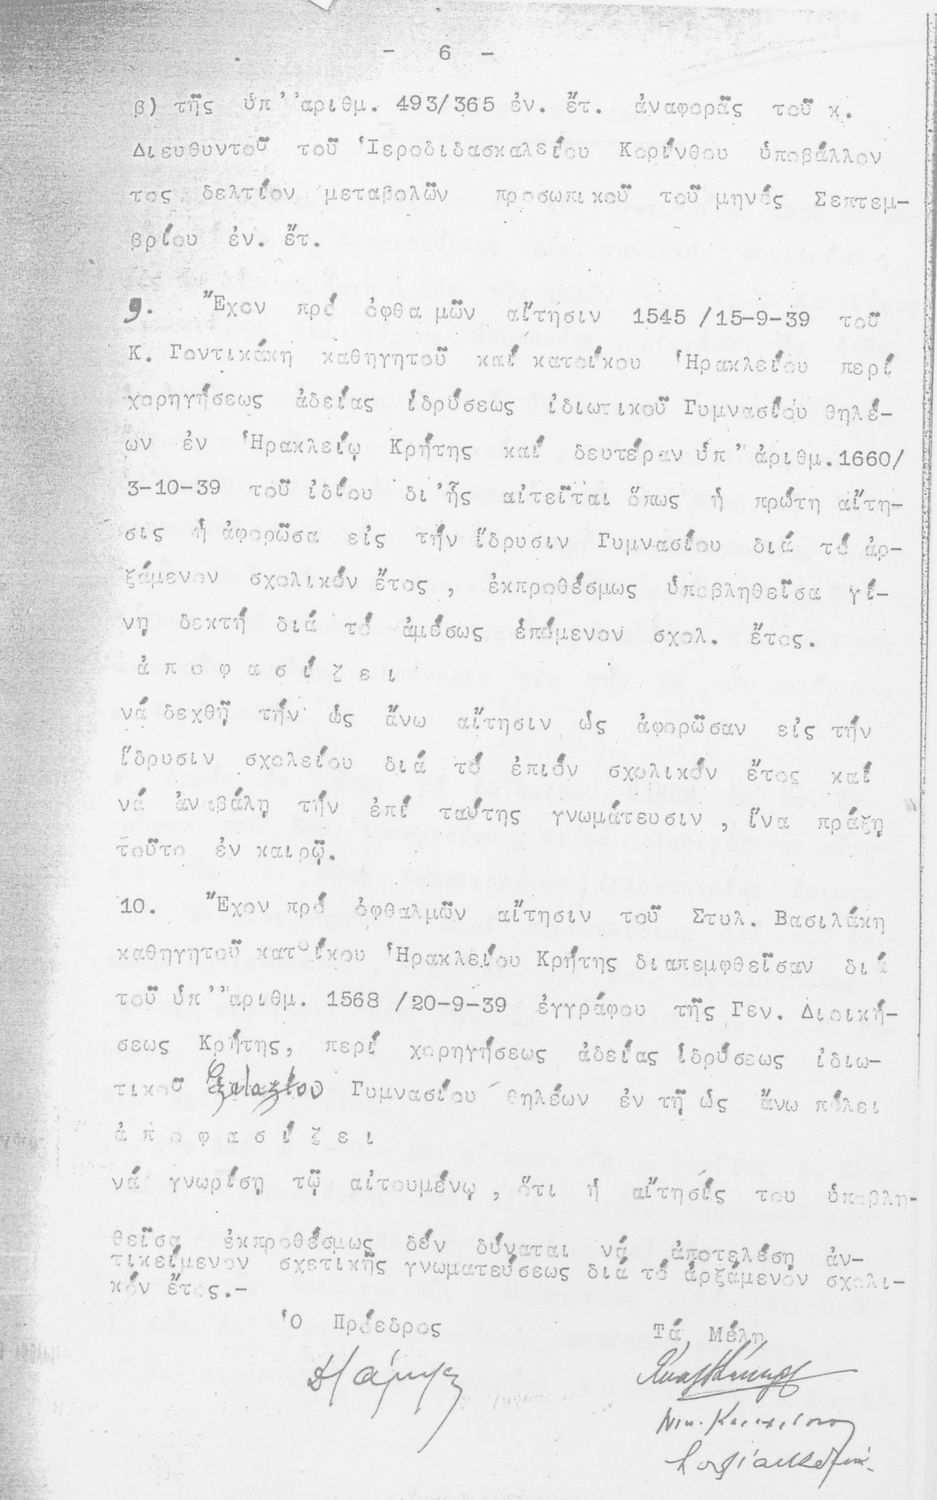 - 6 -
β) τῆς ὑπ' ἀριθμ. 493/365 ἐν. ἔτ. ἀναφορᾶς τοῦ κ.
Διευθυντοῦ τοῦ Ἱεροδιδασκαλείου Κορίνθου ὑποβάλλον
τος δελτίον μεταβολῶν προσωπικοῦ τοῦ μηνός Σεπτεμ-
βρίου ἐν. ἔτ.
9. Ἔχον πρό ὀφθα μῶν αἴτησιν 1545 /15-9-39 τοῦ
Κ. Γοντικάκη καθηγητοῦ καί κατοίκου Ἡρακλείου περί
χορηγήσεως ἀδείας ἱδρύσεως ἰδιωτικοῦ Γυμνασίου θηλέ-
ων ἐν Ἡρακλείῳ Κρήτης καί δευτέραν ὑπ' ἀριθμ.1660/
3-10-39 τοῦ ἰδίου δι'ἧς αἰτεῖται ὅπως ἡ πρώτη αἴτη-
σις ἡ ἀφορῶσα εἰς τήν ἵδρυσιν Γυμνασίου διά τό ἀρ-
ξάμενον σχολικόν ἔτος , ἐκπροθέσμως ὑποβληθεῖσα γί-
νη δεκτή διά τό ἀμέσως ἑπόμενον σχολ. ἔτος.
ἀ π ο φ α σ ί ζ ε ι
νά δεχθῇ τήν ὡς ἄνω αἴτησιν ὡς ἀφορῶσαν εἰς τήν
ἵδρυσιν σχολείου διά τό ἐπιόν σχολικόν ἔτος καί
νά ἀναβάλη τήν ἐπί ταύτης γνωμάτευσιν , ἵνα πράξη
τοῦτο ἐν καιρῷ.
10. Ἔχον πρό ὀφθαλμῶν αἴτησιν τοῦ Στυλ. Βασιλάκη
καθηγητοῦ κατοίκου Ἡρακλείου Κρήτης διαπεμφθεῖσαν διά
τοῦ ὑπ' ἀριθμ. 1568 /20-9-39 ἐγγράφου τῆς Γεν. Διοική-
σεως Κρήτης, περί χορηγήσεως ἀδείας ἱδρύσεως ἰδιω-
τικοῦ Γυμνασίου θηλέων ἐν τῇ ὡς ἄνω πόλει
ἀ π ο φ α σ ί ζ ε ι
νά γνωρίση τῷ αἰτουμένῳ , ὅτι ἡ αἴτησίς του ὑποβλη-
θεῖσα ἐκπροθέσμως δέν δύναται νά ἀποτελέση ἀν-
τικείμενον σχετικῆς γνωματεύσεως διά τό ἀρξάμενον σχολι-
κόν ἔτος.-
Ὁ Πρόεδρος Τά Μέλη